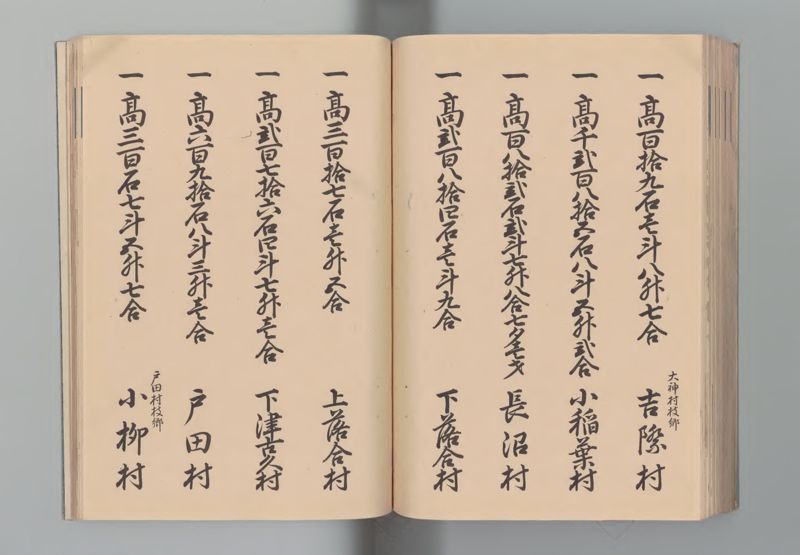 一 高百拾九石壱斗八升七合
大神村枝郷
吉際村
一 高千弐百八拾五石八斗五升弐合
小稲葉村
一 高百八拾弐石弐斗七升八合七夕壱才
長沼村
一 高弐百八拾四石壱斗九合
下落合村
一 高三百拾七石壱升五合
上落合村
一 高弐百七拾六石四斗七升壱合
下津古久村
一 高六百九拾石八斗三升壱合
戸田村
一 高三百石七斗五升七合
戸田村枝郷
小柳村